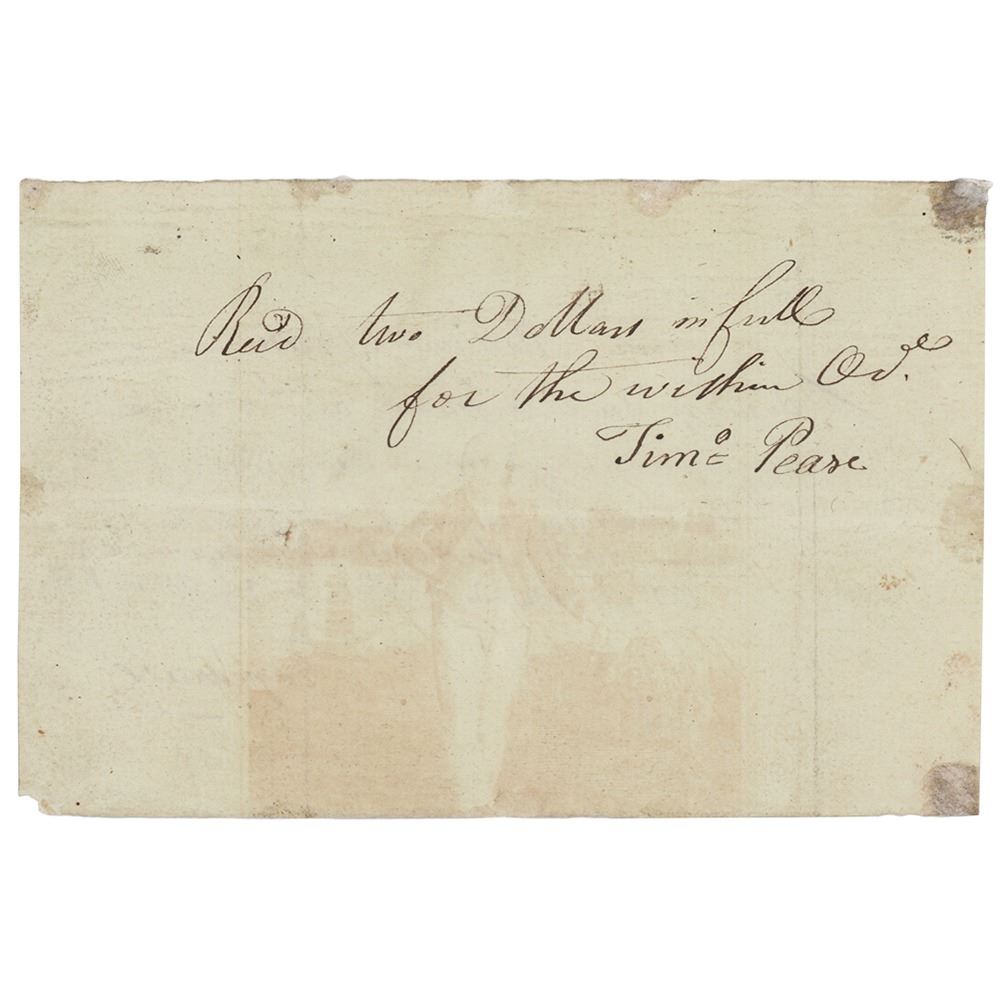 Recd two Dollars in full
for the within Odr.
Timo Pease